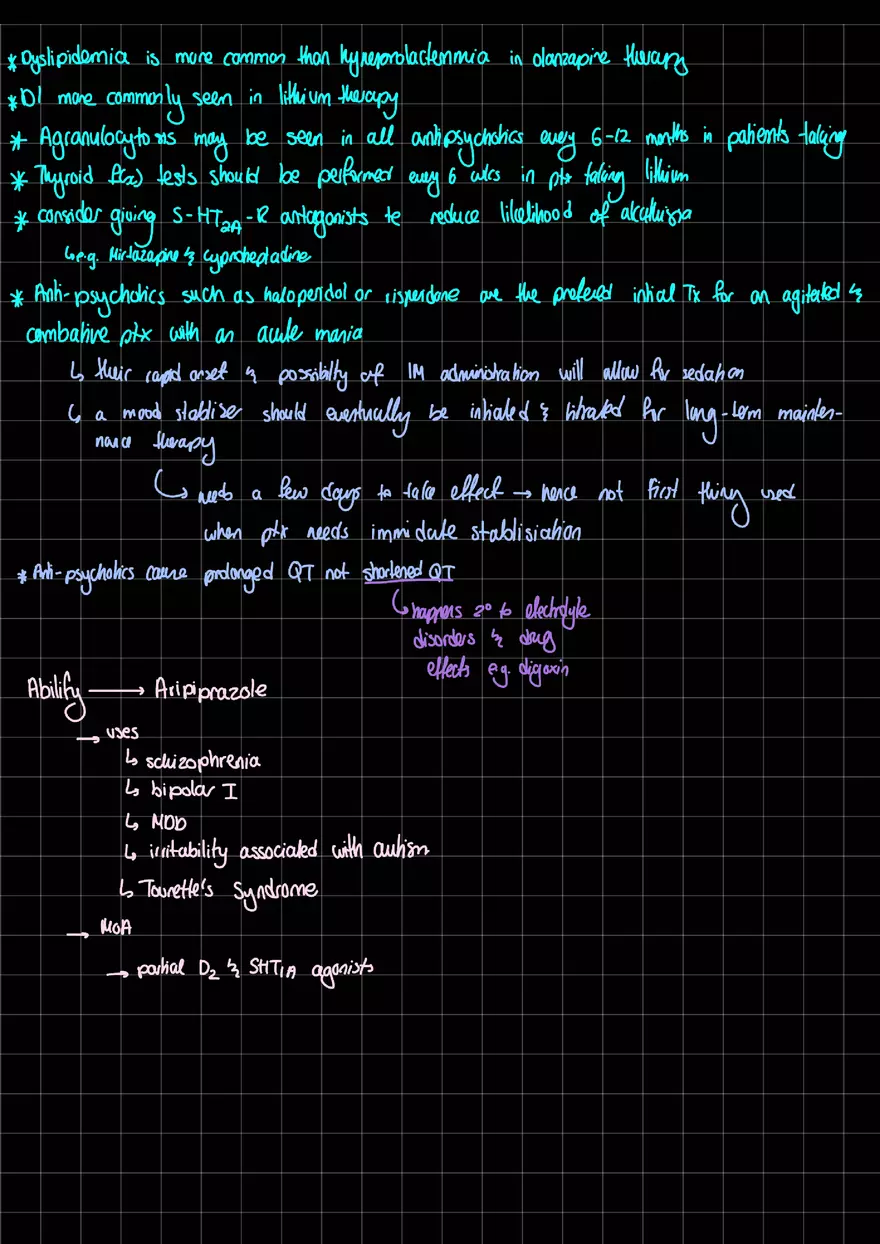 * Dyslipidemia is more common than hyperprolactemmia in olanzapine therapy
* DI more commonly seen in lithium therapy
* Agranulocytosis may be seen in all antipsychotics every 6-12 months in patients taking
* Thyroid f(x) tests should be performed every 6 wks in ptx taking lithium
* consider giving 5-HT2A-R antagonists to reduce likelihood of akathisia
↳ e.g. Mirtazapine & cyproheptadine
* Anti-psychotics such as haloperidol or risperidone are the prefered initial Tx for an agitated &
combative ptx with an acute mania
↳ their rapid onset & possibilty of IM administration will allow for sedation
↳ a mood stabliser should eventually be initiated & titrated for long-term mainten-
nance therapy
↳ needs a few days to take effect → hence not first thing used
when ptx needs immidate stablisiation
* Anti-psychotics cause prolonged QT not shortened QT
↳ happens 2° to electrolyte
disorders & drug
effects e.g. digoxin
Abilify → Aripiprazole
→ uses
↳ schizophrenia
↳ bipolar I
↳ MDD
↳ irritability associated with autism
↳ Tourette's Syndrome
→ MoA
→ partial D2 & 5HT1A agonists